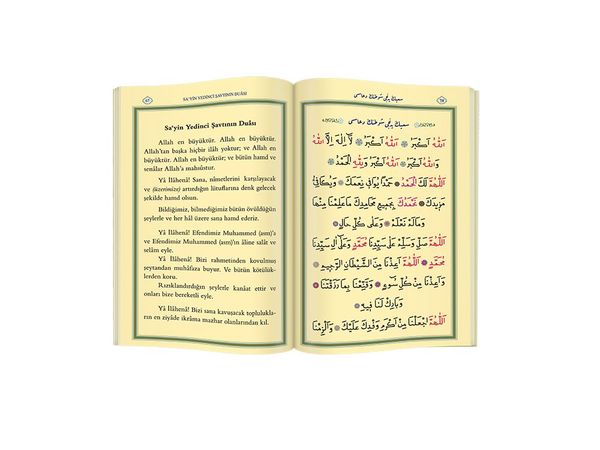 67
SA'YİN YEDİNCİ ŞAVTININ DUÂSI
Sa'yin Yedinci Şavtının Duâsı
Allah en büyüktür. Allah en büyüktür.
Allah'tan başka hiçbir ilâh yoktur; ve Allah en
büyüktür. Allah en büyüktür; ve bütün hamd ve
senâlar Allah'a mahsûstur.
Yâ İlâhenâ! Sana, nîmetlerini karşılayacak
ve (üzerimize) artırdığın lütuflarına denk gelecek
şekilde hamd olsun.
Bildiğimiz, bilmediğimiz bütün övüldüğün
şeylerle ve her hâl üzere sana hamd ederiz.
Yâ İlâhenâ! Efendimiz Muhammed (asm)'a
ve Efendimiz Muhammed (asm)'ın âline salât ve
selâm eyle.
Yâ İlâhenâ! Bizi rahmetinden kovulmuş
şeytandan muhâfaza buyur. Ve bütün kötülük-
lerden koru.
Rızıklandırdığın şeylerle kanâat ettir ve
onları bize bereketli eyle.
Yâ İlâhenâ! Bizi sana kavuşacak toplulukla-
rın en ziyâde ikrâma mazhar olanlarından kıl.
سعيك يدنجى شوطنك دعاسى
سعيك يدنجى شوطنك دعاسى
اَللهُ اَكْبَرُ اَللهُ اَكْبَرُ لَا اِلٰهَ اِلَّا اللهُ
وَاللهُ اَكْبَرُ اَللهُ اَكْبَرُ وَلِلّٰهِ الْحَمْدُ
اَللّٰهُمَّ لَكَ الْحَمْدُ حَمْدًا يُوَافِي نِعَمَكَ وَيُكَافِي
مَزِيدَكَ نَحْمَدُكَ بِجَمِيعِ مَحَامِدِكَ مَا عَلِمْنَا مِنْهَا
وَمَا لَمْ نَعْلَمْ وَعَلٰى كُلِّ حَالٍ
اَللّٰهُمَّ صَلِّ وَسَلِّمْ عَلٰى سَيِّدِنَا مُحَمَّدٍ وَعَلٰى اٰلِ سَيِّدِنَا
مُحَمَّدٍ اَللّٰهُمَّ اَعِذْنَا مِنَ الشَّيْطَانِ الرَّجِيمِ
وَاَعِذْنَا مِنْ كُلِّ سُوءٍ وَقَنِّعْنَا بِمَا رَزَقْتَنَا
وَبَارِكْ لَنَا فِيهِ
اَللّٰهُمَّ اجْعَلْنَا مِنْ اَكْرَمِ وَفْدِكَ عَلَيْكَ وَاَلْزِمْنَا